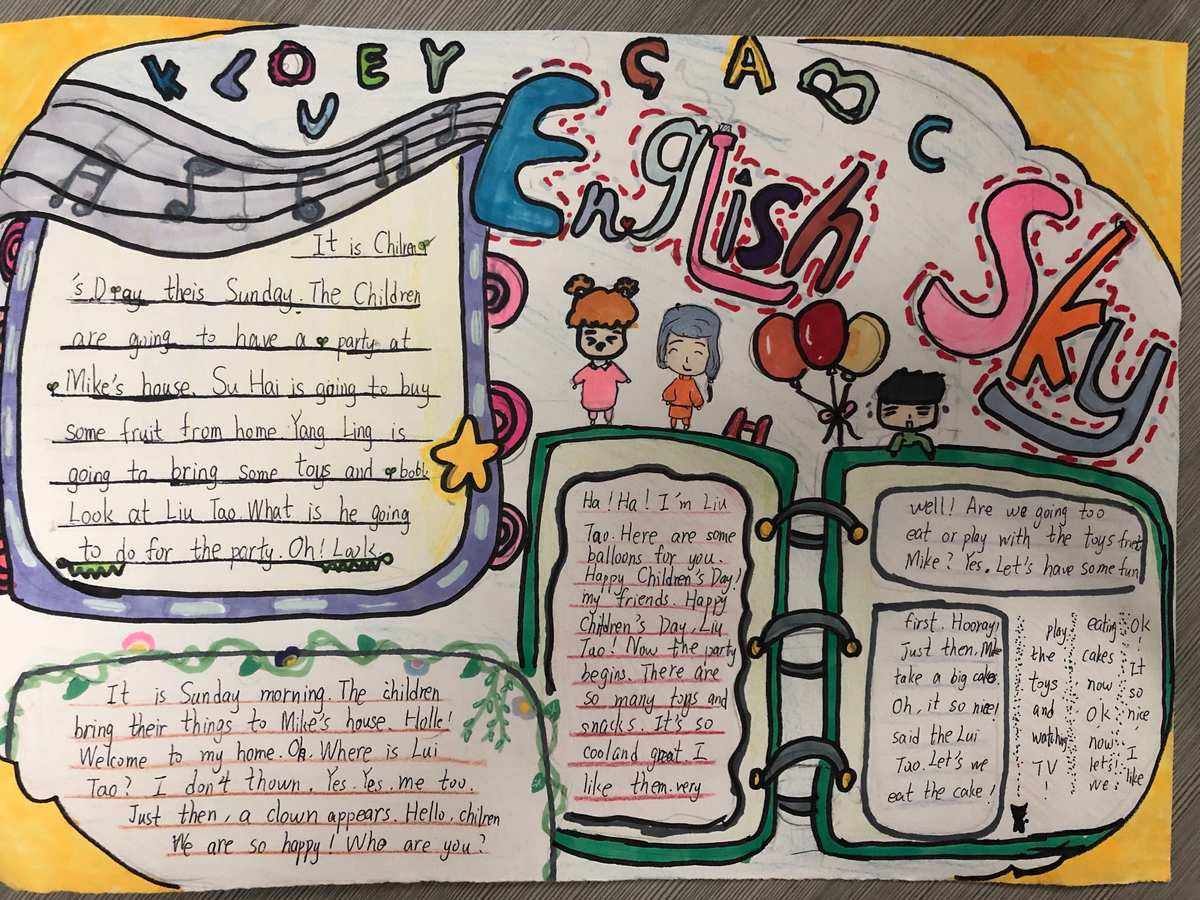 K L O V E Y C A B C
English
Sky
It is Chilren
's Dray theis Sunday. The Children
are going to have a party at
Mike's house. Su Hai is going to buy
some fruit from home Yang Ling is
going to bring some toys and
Look at Liu Tao. What is he going
to do for the party. Oh! Look
It is Sunday morning. The children
bring their things to Mike's house. Holle!
Welcome to my home. Oh. Where is Lui
Tao? I don't thown. Yes. Yes. me too.
Just then, a clown appears. Hello, chilren
We are so happy! Who are you?
H
Ha! Ha! I'm Liu
Tao. Here are some
balloons for you.
Happy Children's Day!
my friends. Happy
Children's Day, Liu
Tao! Now the party
begins. There are
so many tops and
snacks. It's so
cooland great. I
like them. very
well! Are we going too
eat or play with the toys
Mike? Yes. Let's have some fun
first. Hooray!
Just then, Mike
take a big cake.
Oh, it so nice!
said the Lui
Tao. Let's we
eat the cake!
play
the
toys
and
watching
TV
!
eating
cakes
now
Ok
now
let's
we
Ok
!
It
so
nice
,
I
like